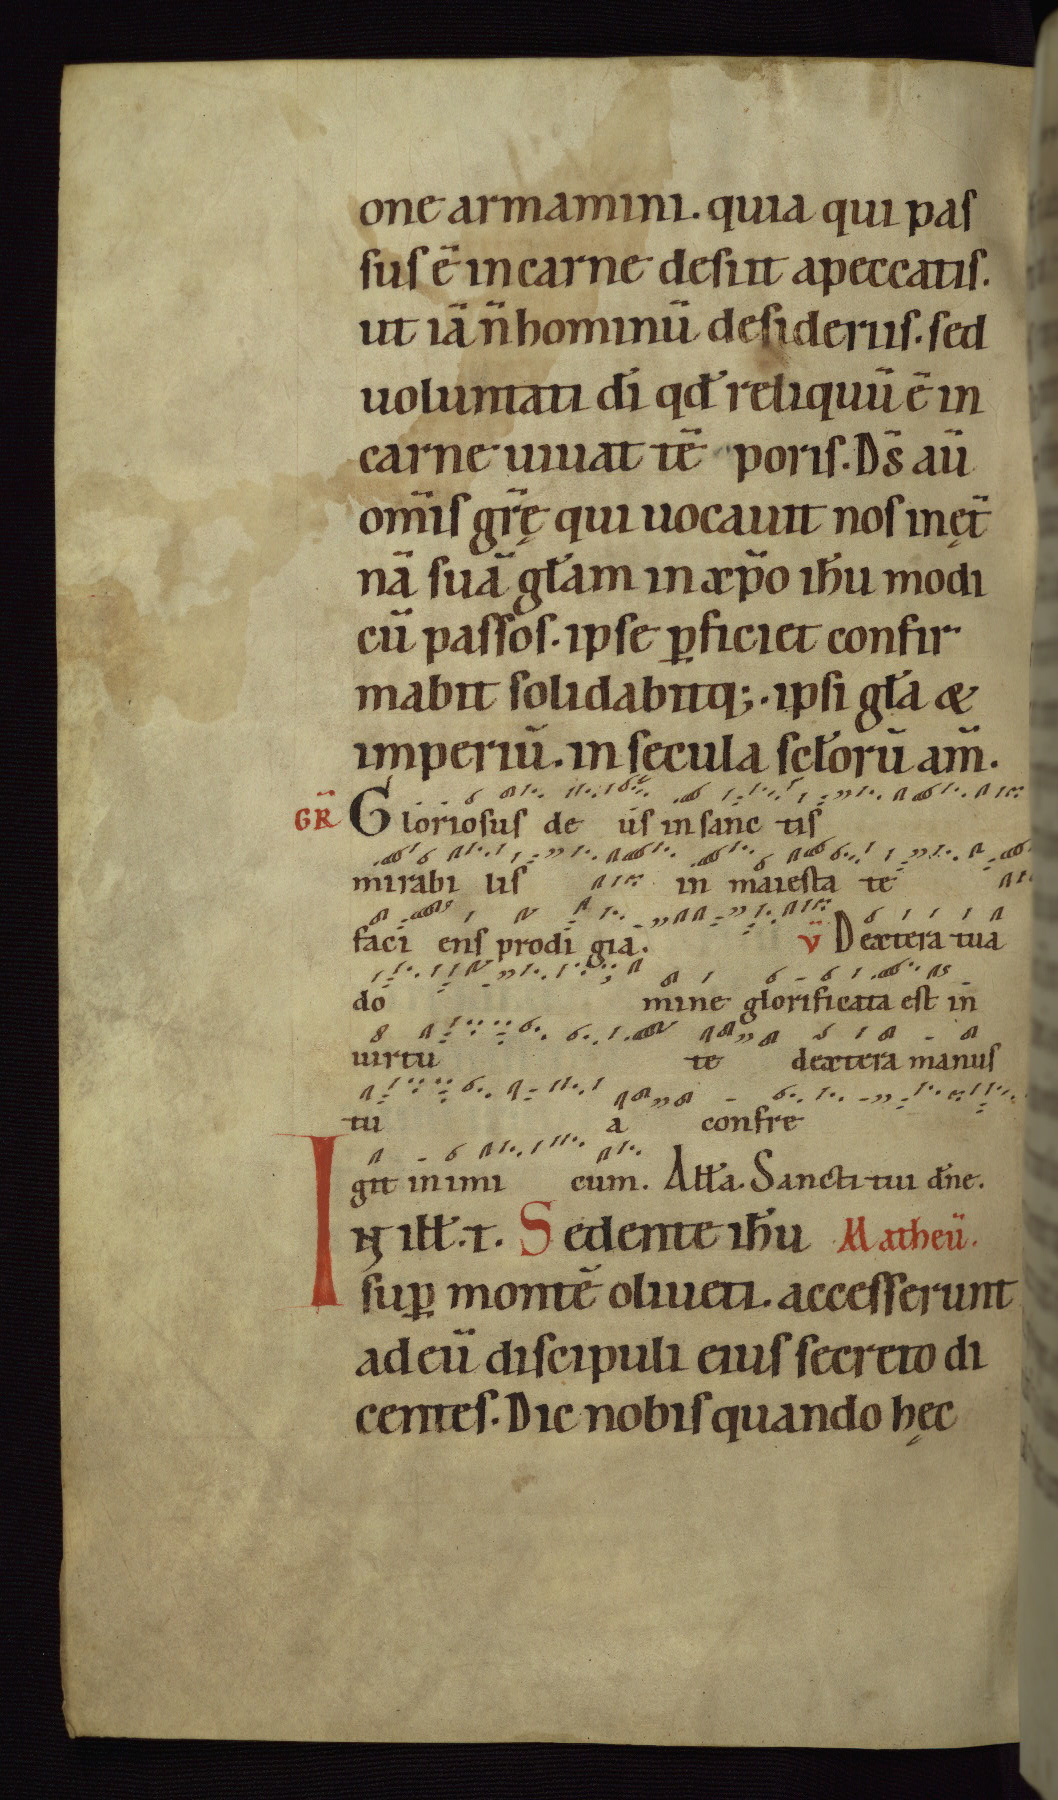 one armamini. quia qui paſ
ſuſ ē incarne deſiit apeccatiſ.
ut iā n̄ hominū deſideriiſ. ſed
uoluntati dī qđ reliquū ē in
carne uiuat tē poriſ. Dſ̄ aū
om̄iſ gr̄ę qui uocauit noſ inęt̄
nā ſuā głam in xp̄o ihu̅ modi
cū paſſoſ. ipſe ꝑficiet confir
mabit ſolidabitq;. ipſi gła &
imperiū. in ſęcula ſcłorū am̄.
GR̄ Glorioſuſ de uſ in ſanc tiſ
mirabi liſ in maieſta te
faci enſ prodi gia. v̄ Dextera tua
do mine glorificata eſt in
uirtu te dextera manuſ
tu a confre
git inimi cum. Ałła. Sancti tui dn̄e.
IN iłł. t. Sedente ihu̅ Matheū.
ſuꝑ montē oliueti. acceſſerunt
ad eū diſcipuli eiuſ ſecreto di
centeſ. Dic nobiſ quando hęc